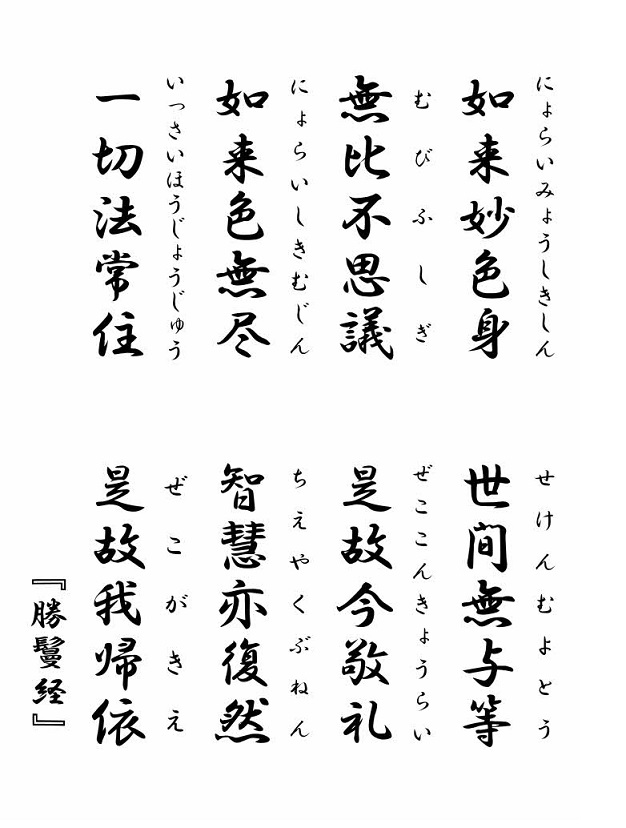 にょらいみょうしきしん
如来妙色身
せけんむよとう
世間無与等
むびふしぎ
無比不思議
ぜここんきょうらい
是故今敬礼
にょらいしきむじん
如来色無尽
ちえやくぶねん
智慧亦復然
いっさいほうじょうじゅう
一切法常住
ぜこがきえ
是故我帰依
『勝鬘経』